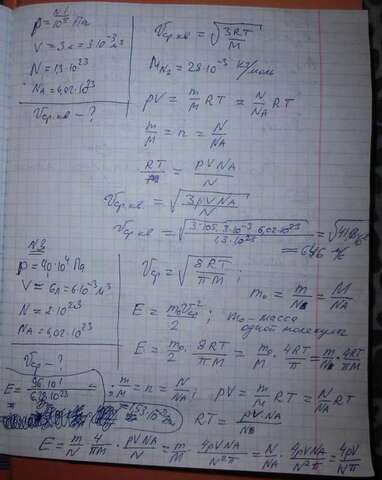 №1
p = 10⁵ Па
V = 3л = 3·10⁻³ м³
N = 1,3·10²³
N_A = 6,02·10²³
Vср.кв - ?
Vср.кв = √(3RT/M)
M_N₂ = 28·10⁻³ кг/моль
pV = m/M RT = N/N_A RT
m/M = n = N/N_A
RT/M = pVN_A/N
Vср.кв = √(3pVN_A/N)
Vср.кв = √(3·10⁵·3·10⁻³·6,02·10²³/1,3·10²³) =
= 646 м/с
№2
p = 4,0·10⁴ Па
V = 6л = 6·10⁻³ м³
N = 2·10²³
N_A = 6,02·10²³
Vср - ?
Vср = √(8RT/πM)
m₀ = m/N = M/N_A
E = m₀Vср²/2 ; m₀ - масса
одной молекулы
E = m₀/2 · 8RT/πM = m₀/M · 4RT/π = m/N · 4RT/πM
E = 96·10¹/6,28·10²³ =
= 153·10⁻²³ Дж
m/M = n = N/N_A ; pV = m/M RT = N/N_A RT
RT = pVN_A/N
E = m/N · 4/πM · pVN_A/N = m/M · 4pVN_A/N²π = N/N_A · 4pVN_A/N²π = 4pV/Nπ